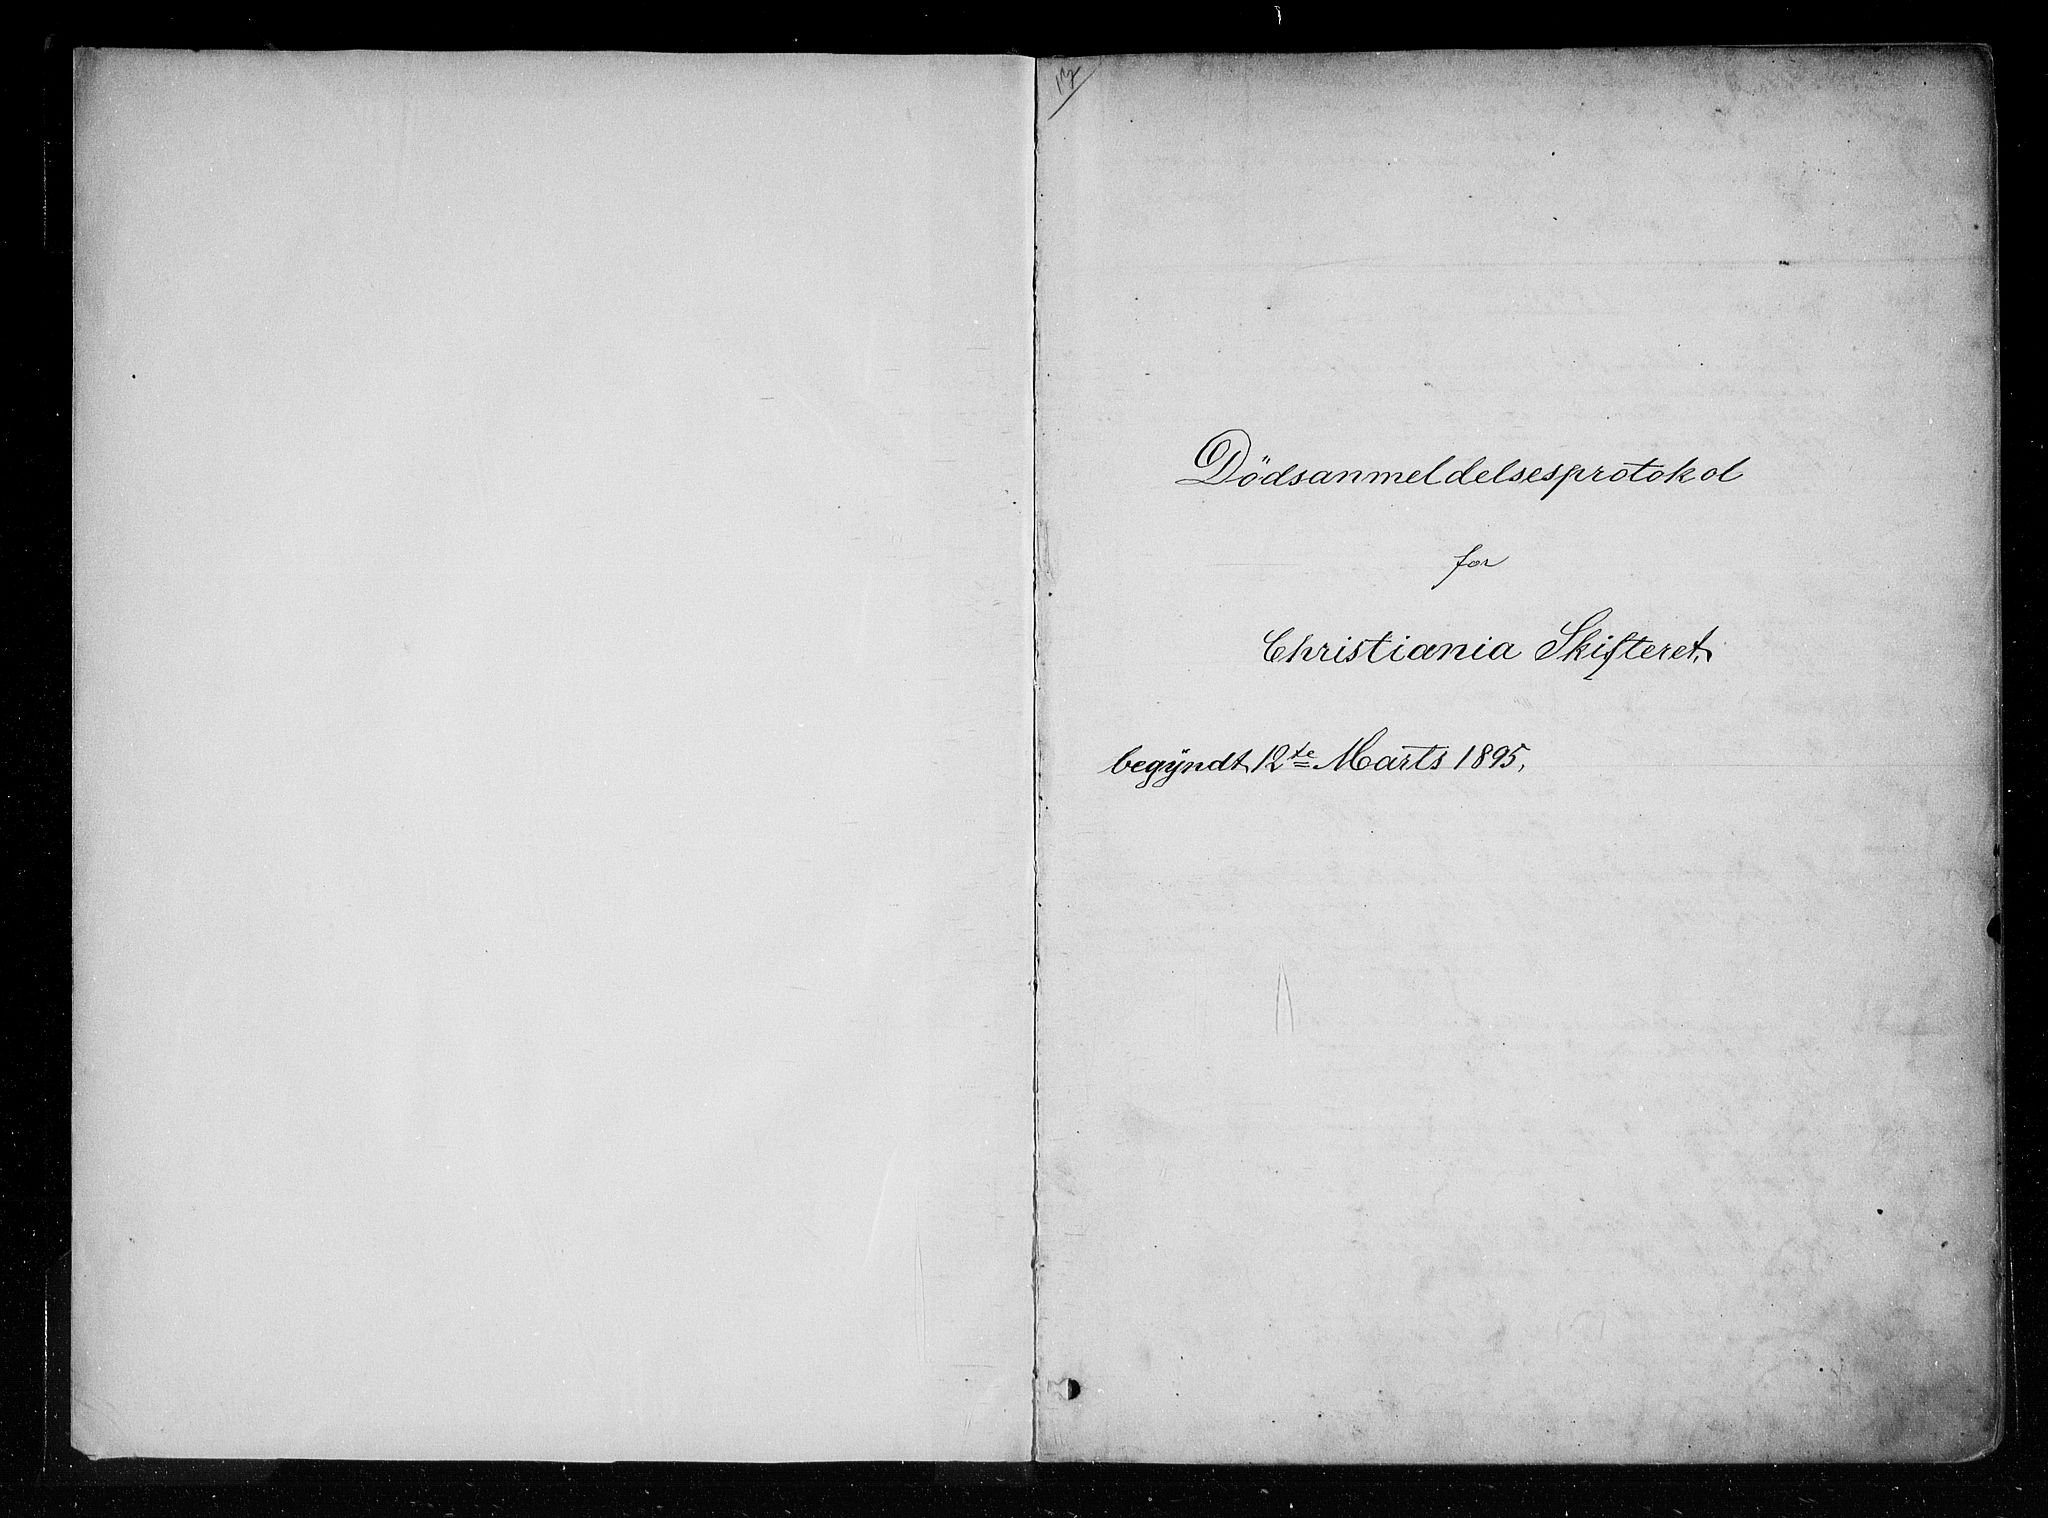 Dödsanmeldelsesprotokol
for
Christiania Skifteret,
begÿndt 12te Marts 1895,